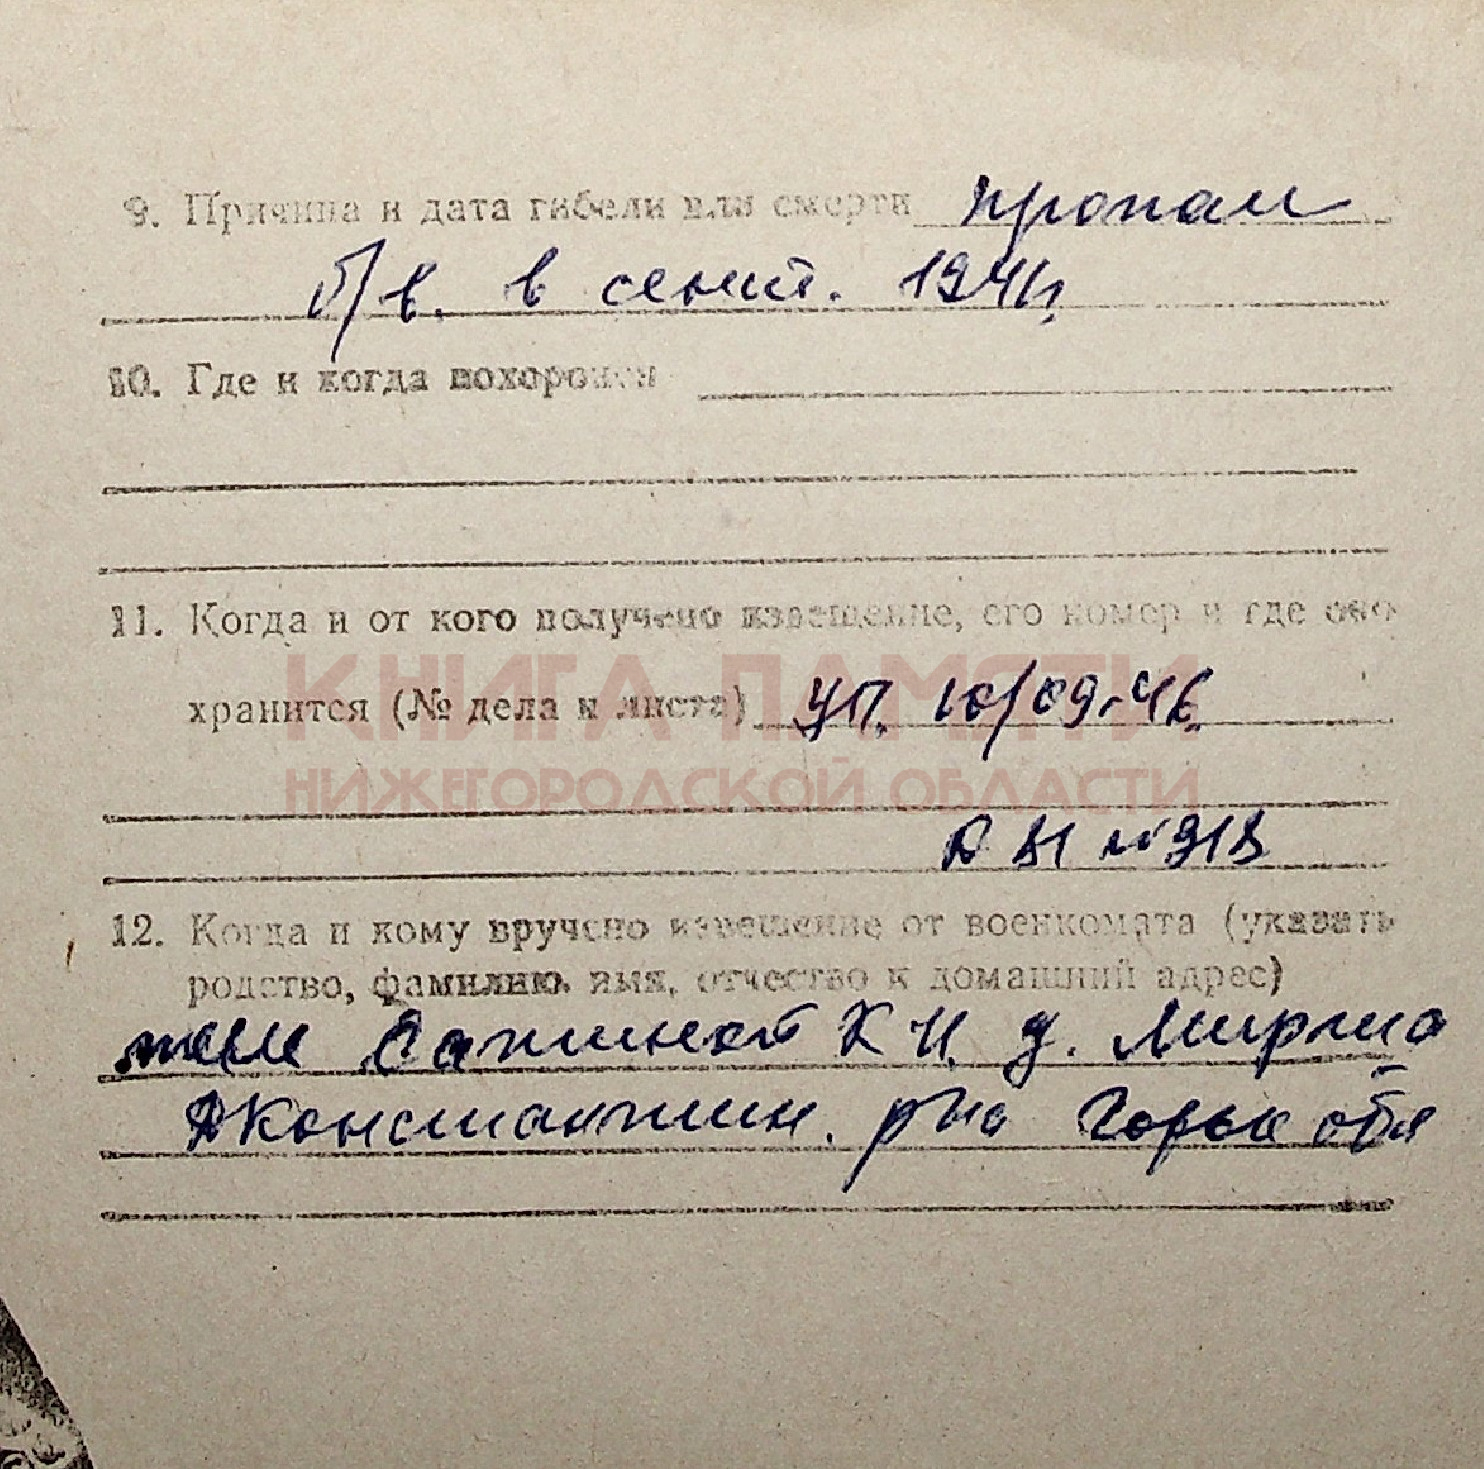 9. Причина и дата гибели или смерти пропал
б/в. в сент. 1941г.
10. Где и когда похоронен
11. Когда и от кого получено извещение, его номер и где оно
КНИГА ПАМЯТИ
хранится (№ дела и листа) УП. 10/09-46.
НИЖЕГОРОДСКОЙ ОБЛАСТИ
12. Когда и кому вручено извещение от военкомата (указать
родство, фамилию, имя, отчество и домашний адрес)
жене К И. д.
Дконстантин. р-на Горьк обл